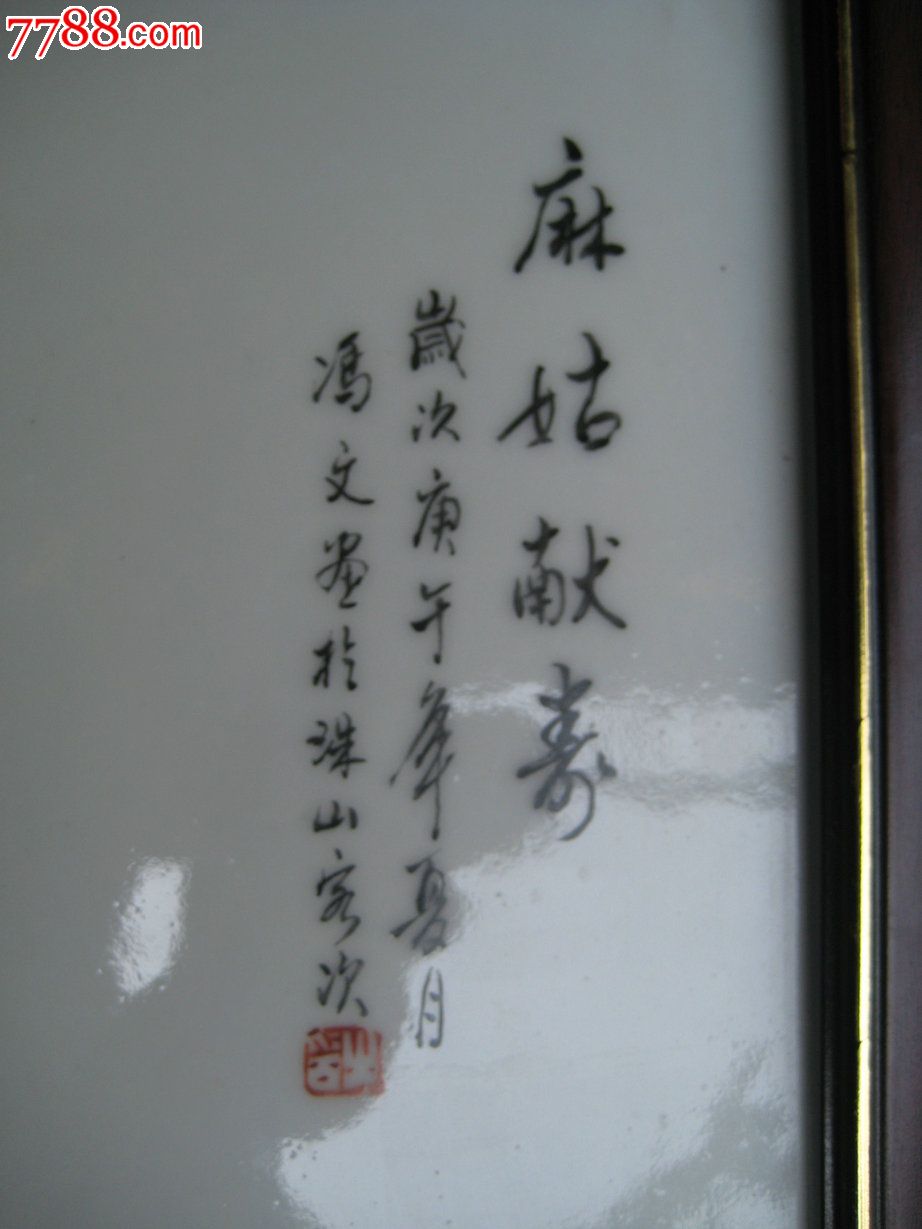 7788.com
麻姑献寿
歲次庚午年夏月
馮文画於珠山客次